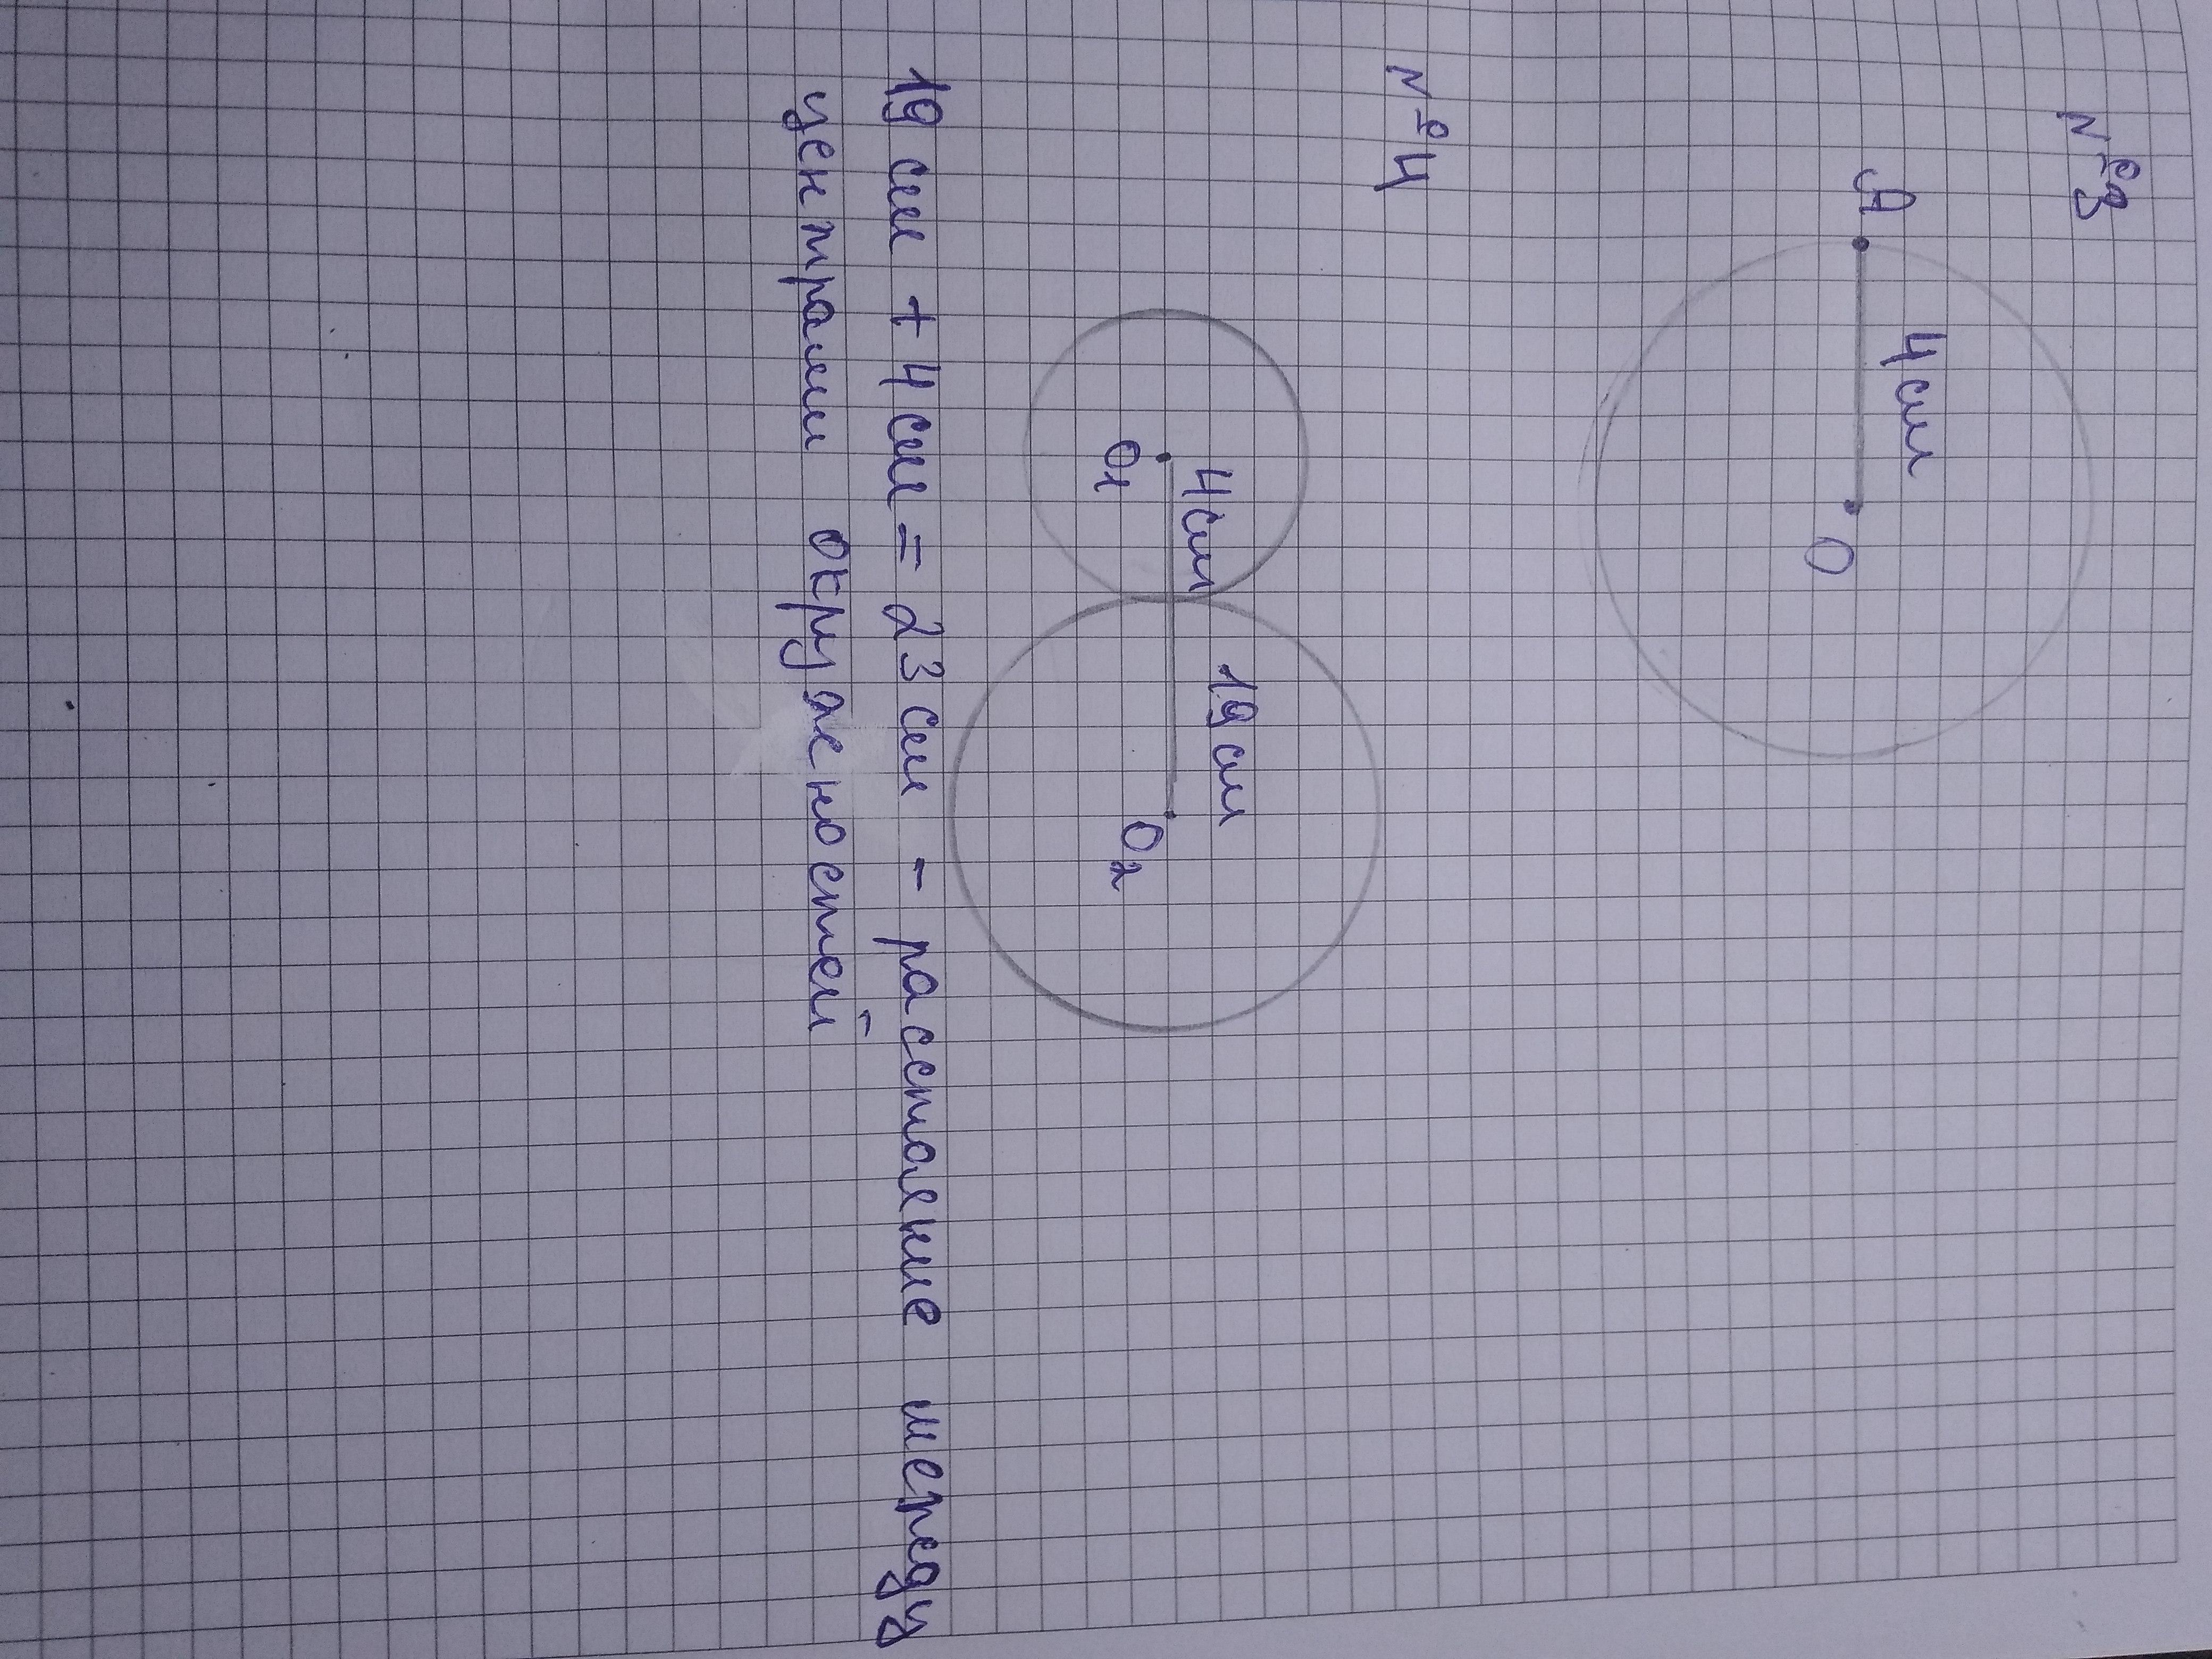 №3
A
4 см
O
№4
4 см
19 см
O1
O2
19 см + 4 см = 23 см - расстояние между
центрами окружностей